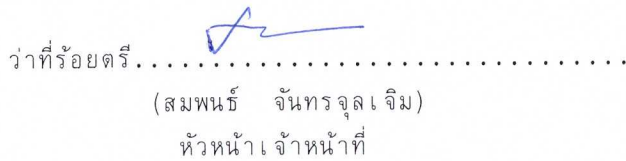 ว่าที่ร้อยตรี........................................
(สมพนธ์ จันทรจุลเจิม)
หัวหน้าเจ้าหน้าที่